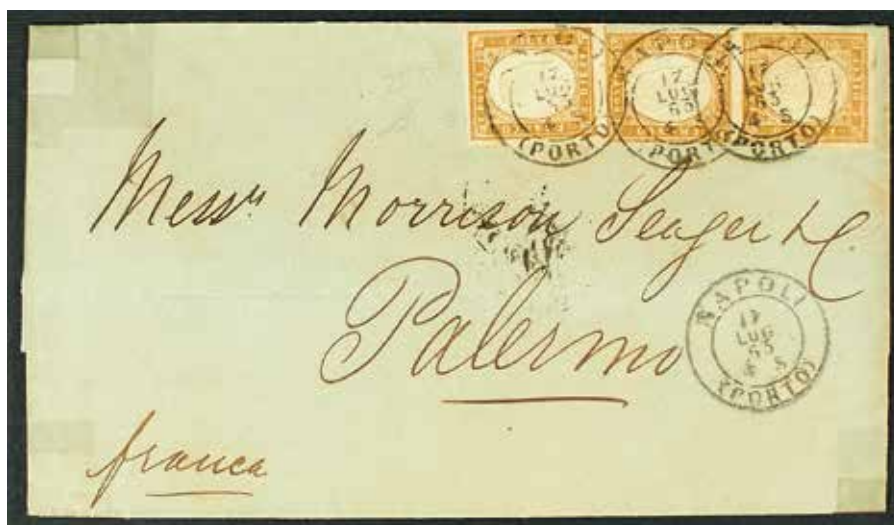 NAPOLI
17
LUG
65
4 S
(PORTO)
NAPOLI
17
LUG
65
4 S
(PORTO)
17
LUG
65
4 S
(PORTO)
Messrs Morrison Seager & C
Palermo
NAPOLI
17
LUG
65
4 S
(PORTO)
franca